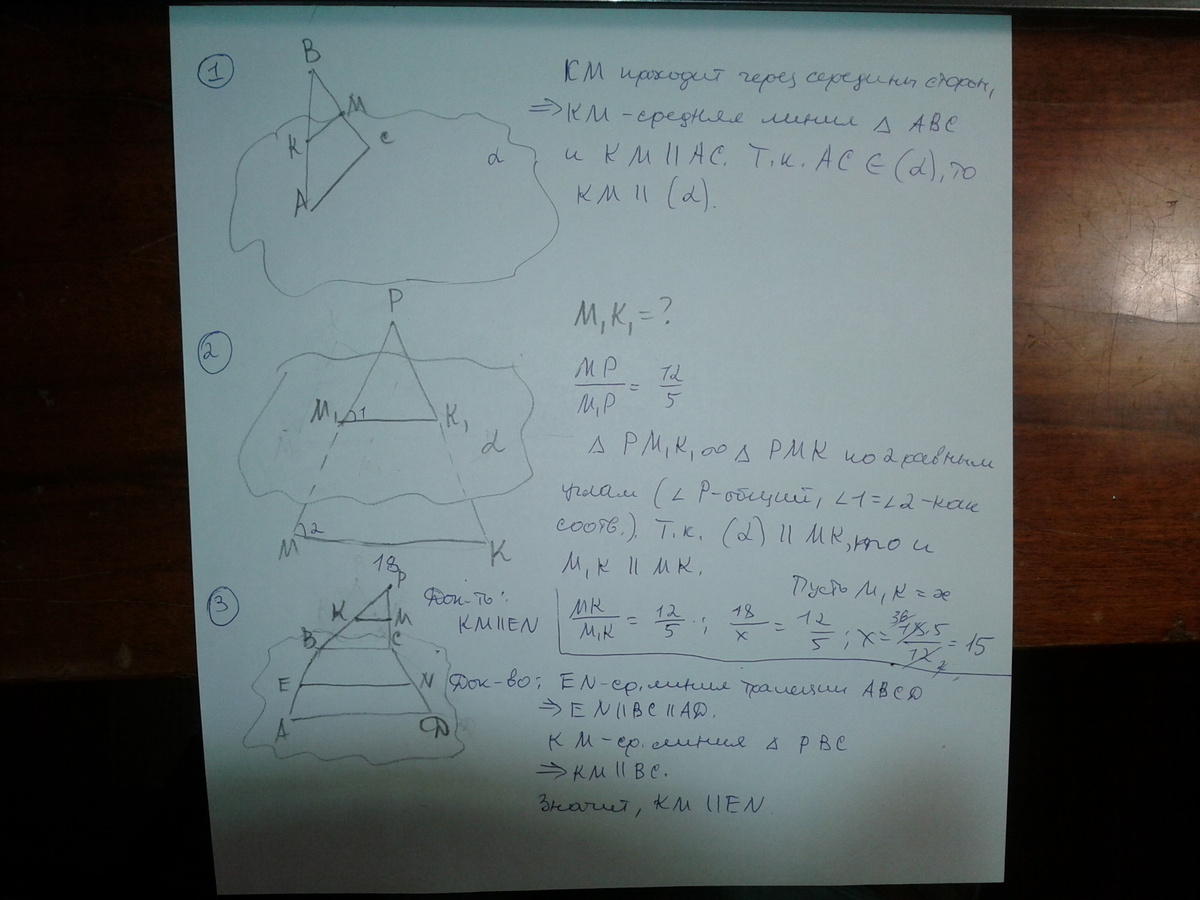 1
B
M
K
C
α
A
KM проходит через середины сторон,
⇒ KM - средняя линия △ ABC
и KM || AC. Т.к. AC ∈ (α), то
KM || (α).
2
P
M₁
1
K₁
α
M
2
K
18
M₁K₁ = ?
MP/M₁P = 12/5
△ PM₁K₁ ∞ △ PMK по 2 равным
углам (∠ P-общий, ∠1=∠2-как
соотв.). Т.к. (α) || MK, то и
M₁K || MK.
Пусть M₁K = x
MK/M₁K = 12/5 ; 18/x = 12/5 ; x = 18·5/12 = 15
3
P
K
M
B
C
E
N
A
D
Док-ть:
KM || EN
Док-во: EN-ср. линия трапеции ABCD
⇒ EN || BC || AD.
KM - ср. линия △ PBC
⇒ KM || BC.
Значит, KM || EN.